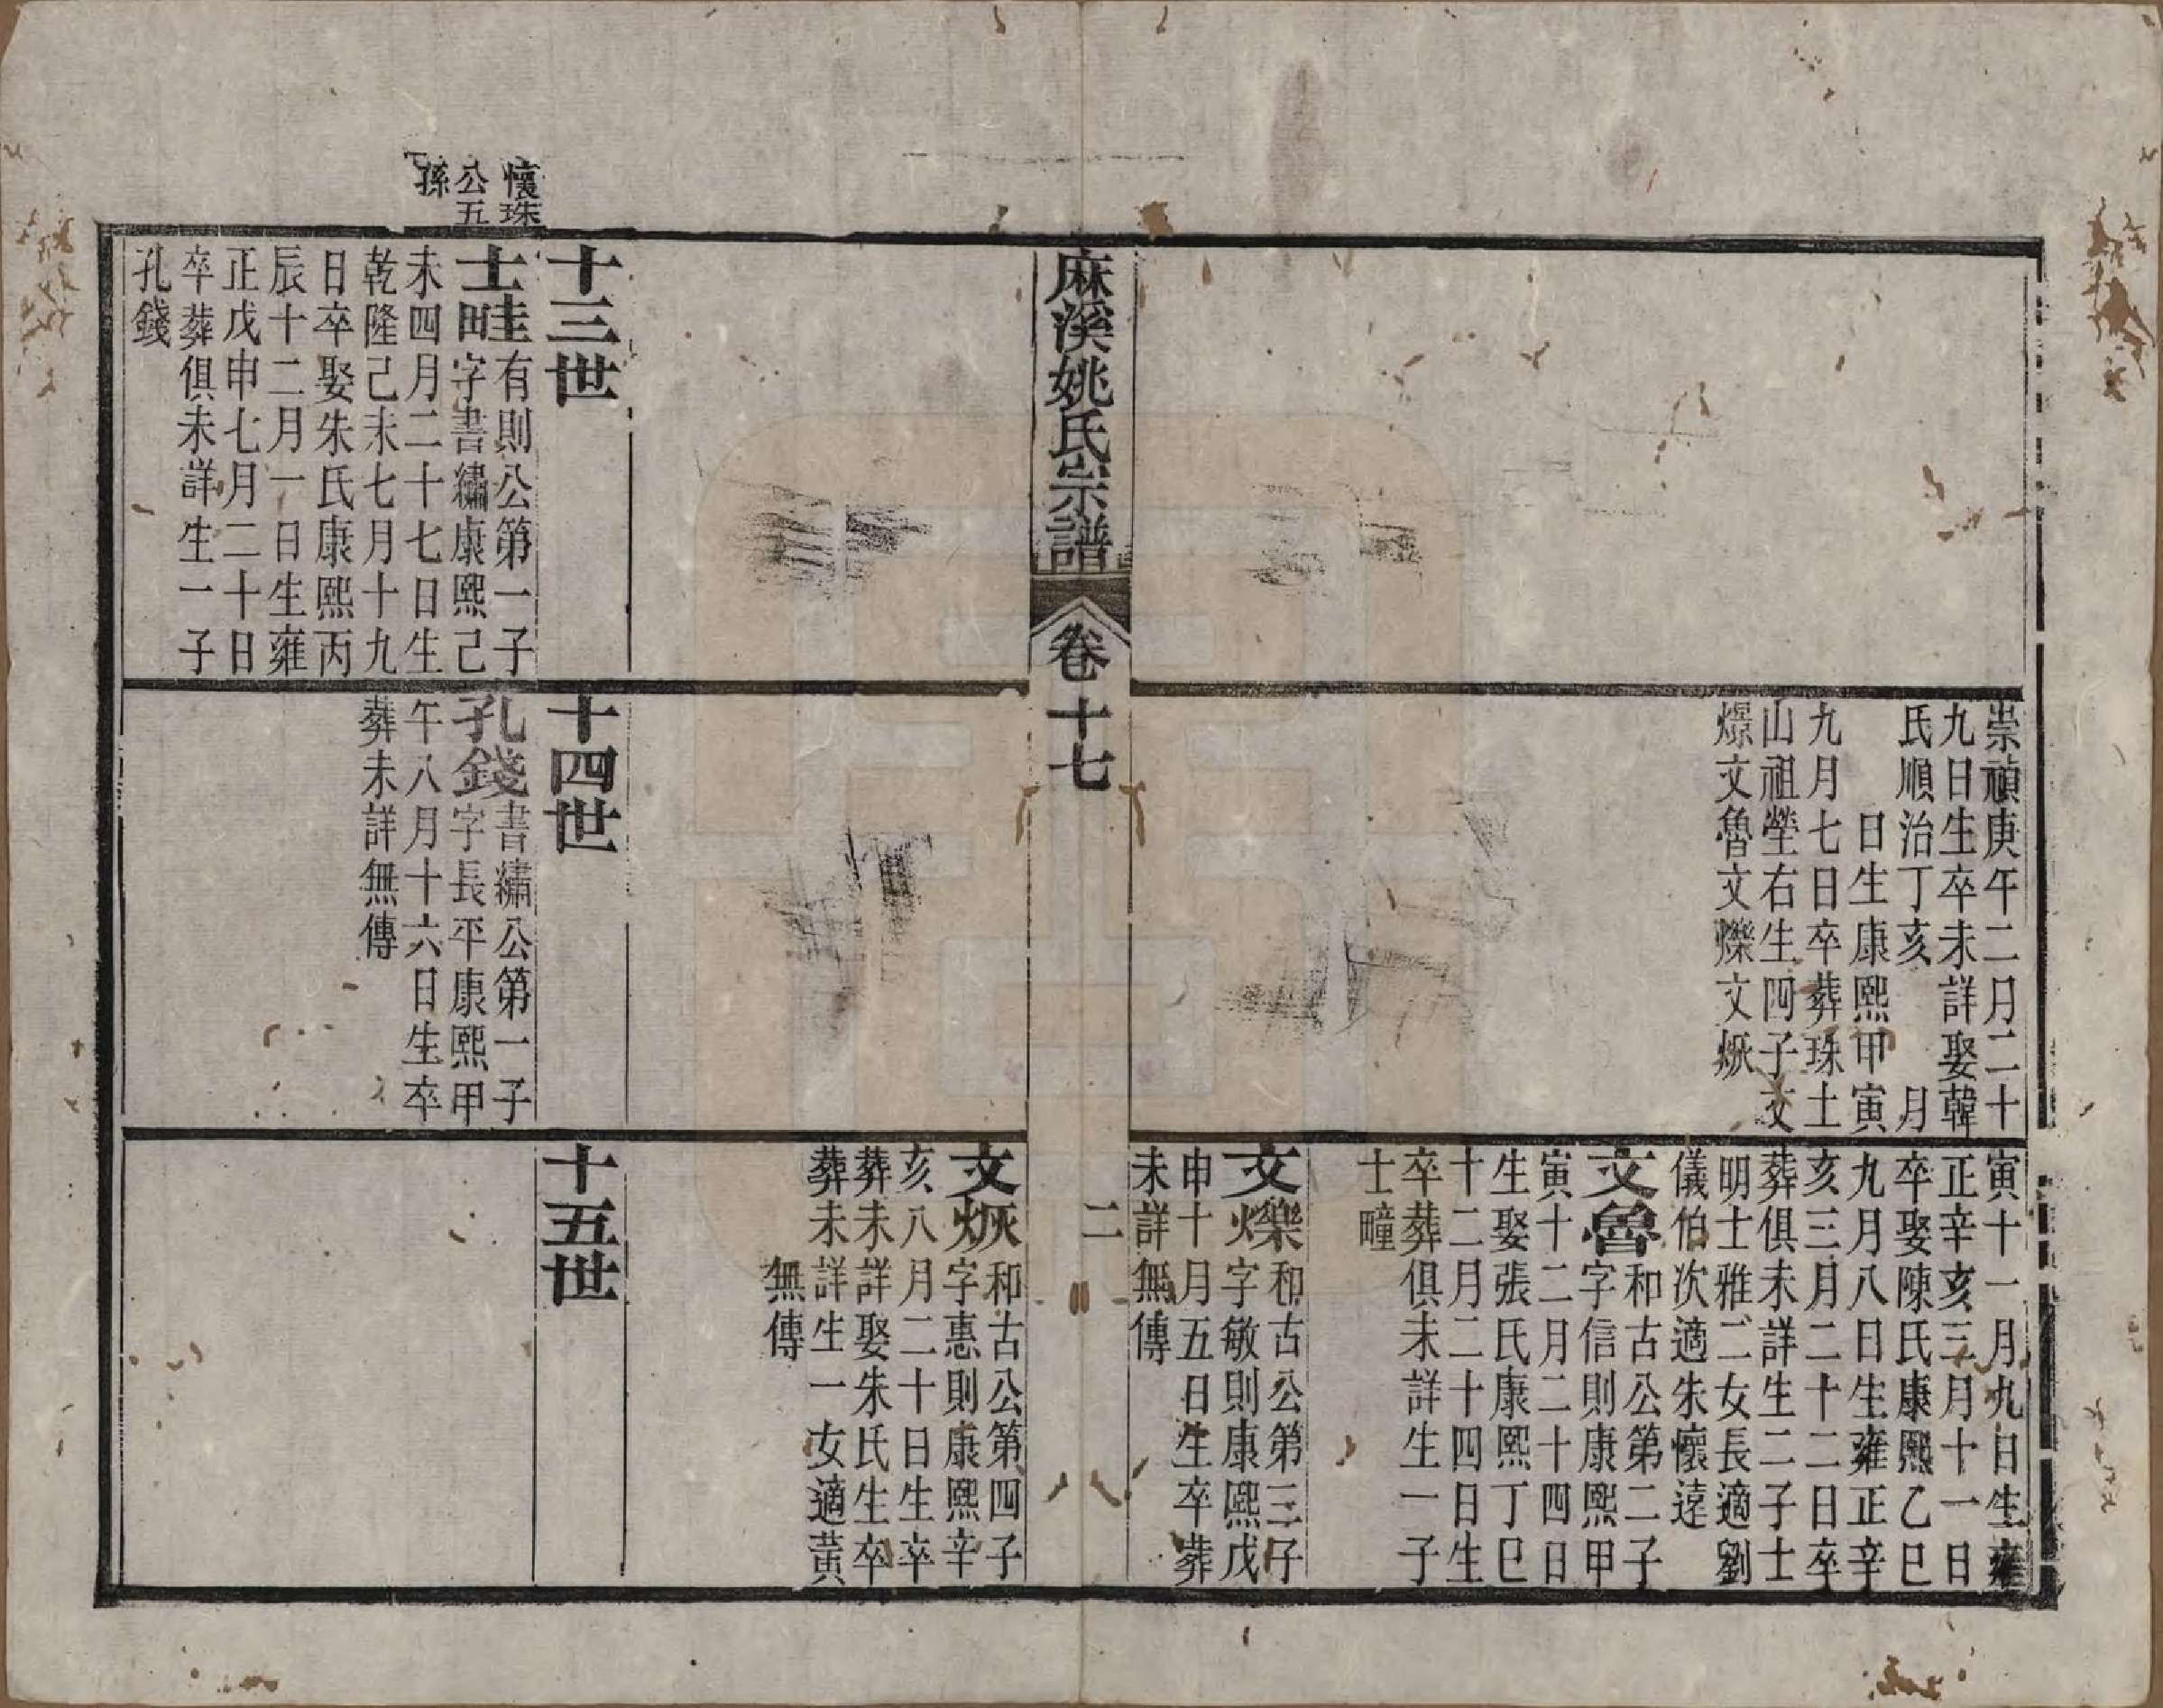 崇禎庚午二月二十
九日生卒未詳娶韓
氏順治丁亥　月
日生康熙甲寅
九月七日卒葬珠土
山祖塋右生四子文
燝文魯文爍文烣
寅十一月九日生雍
正辛亥三月十一日
卒娶陳氏康熙乙巳
九月八日生雍正辛
亥三月二十二日卒
葬俱未詳生二子士
明士雅二女長適劉
儀伯次適朱懷遠
文魯和古公第二子
字信則康熙甲
寅十二月二十四日
生娶張氏康熙丁巳
十二月二十四日生
卒葬俱未詳生一子
士疃
文爍和古公第三子
字敏則康熙戊
申十月五日生卒葬
未詳無傳
麻溪姚氏宗譜
卷十七
二
文烣和古公第四子
字惠則康熙辛
亥八月二十日生卒
葬未詳娶朱氏生卒
葬未詳生一女適黃
無傳
懷珠
公五
孫
十三世
士畦有則公第一子
字書繡康熙己
未四月二十七日生
乾隆己未七月十九
日卒娶朱氏康熙丙
辰十二月一日生雍
正戊申七月二十日
卒葬俱未詳生一子
孔錢
十四世
孔錢書繡公第一子
字長平康熙甲
午八月十六日生卒
葬未詳無傳
十五世